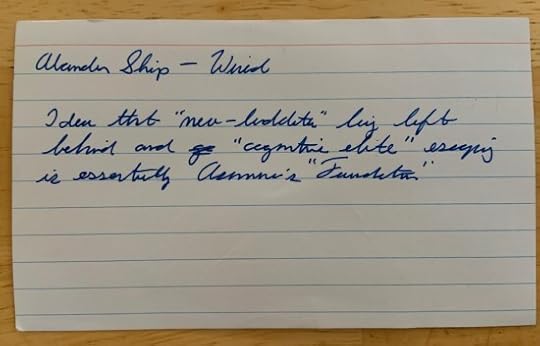 Alexander Ship – Wired
Idea that "neo-luddites" being left
behind and "cognitive elite" escaping
is essentially Asimov's "Foundation"